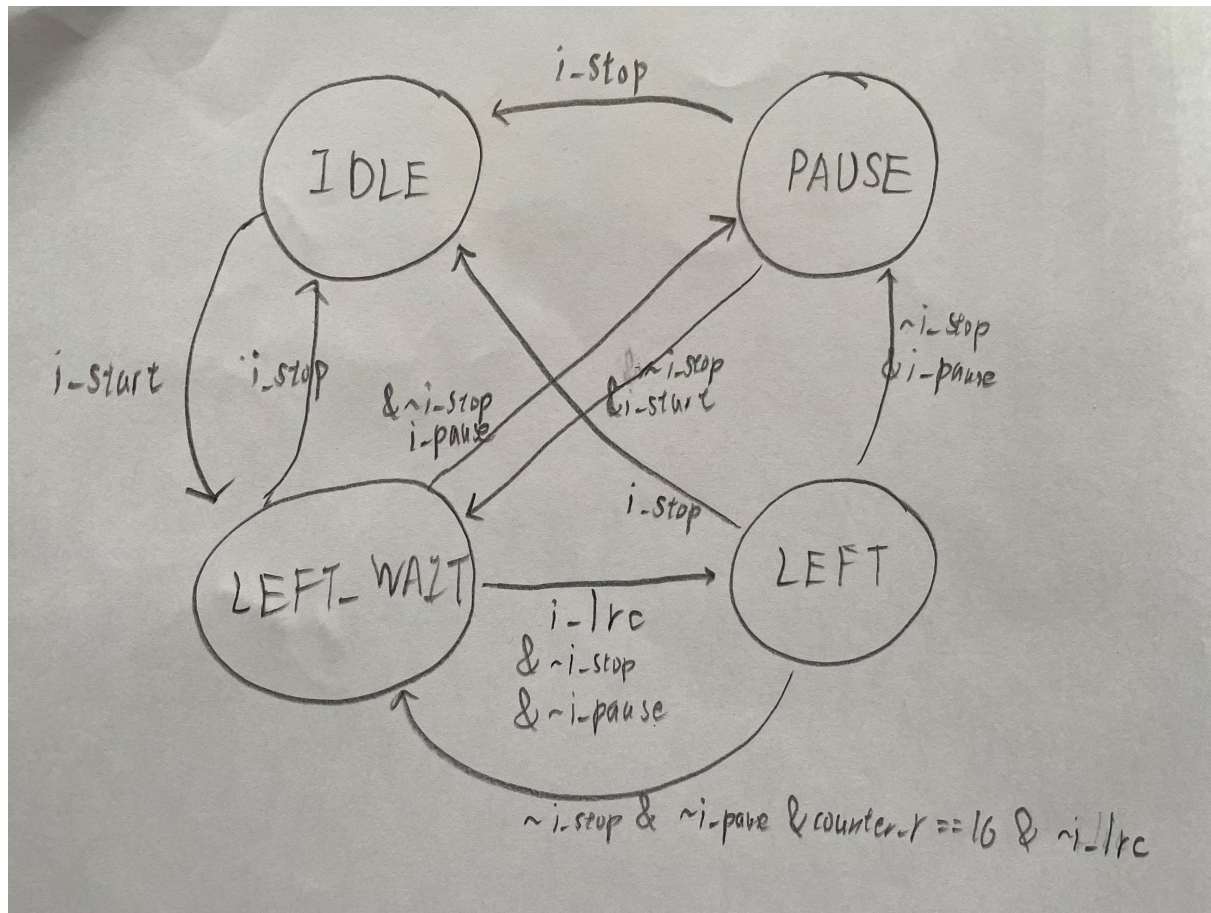 i_stop
IDLE
PAUSE
i_start
i_stop
&~i_stop
i_pause
~i_stop
&i_start
~i_stop
&i_pause
i_stop
LEFT_WAIT
LEFT
i_lrc
& ~i_stop
& ~i_pause
~i_stop & ~i_paue & counter_r == 16 & ~i_lrc